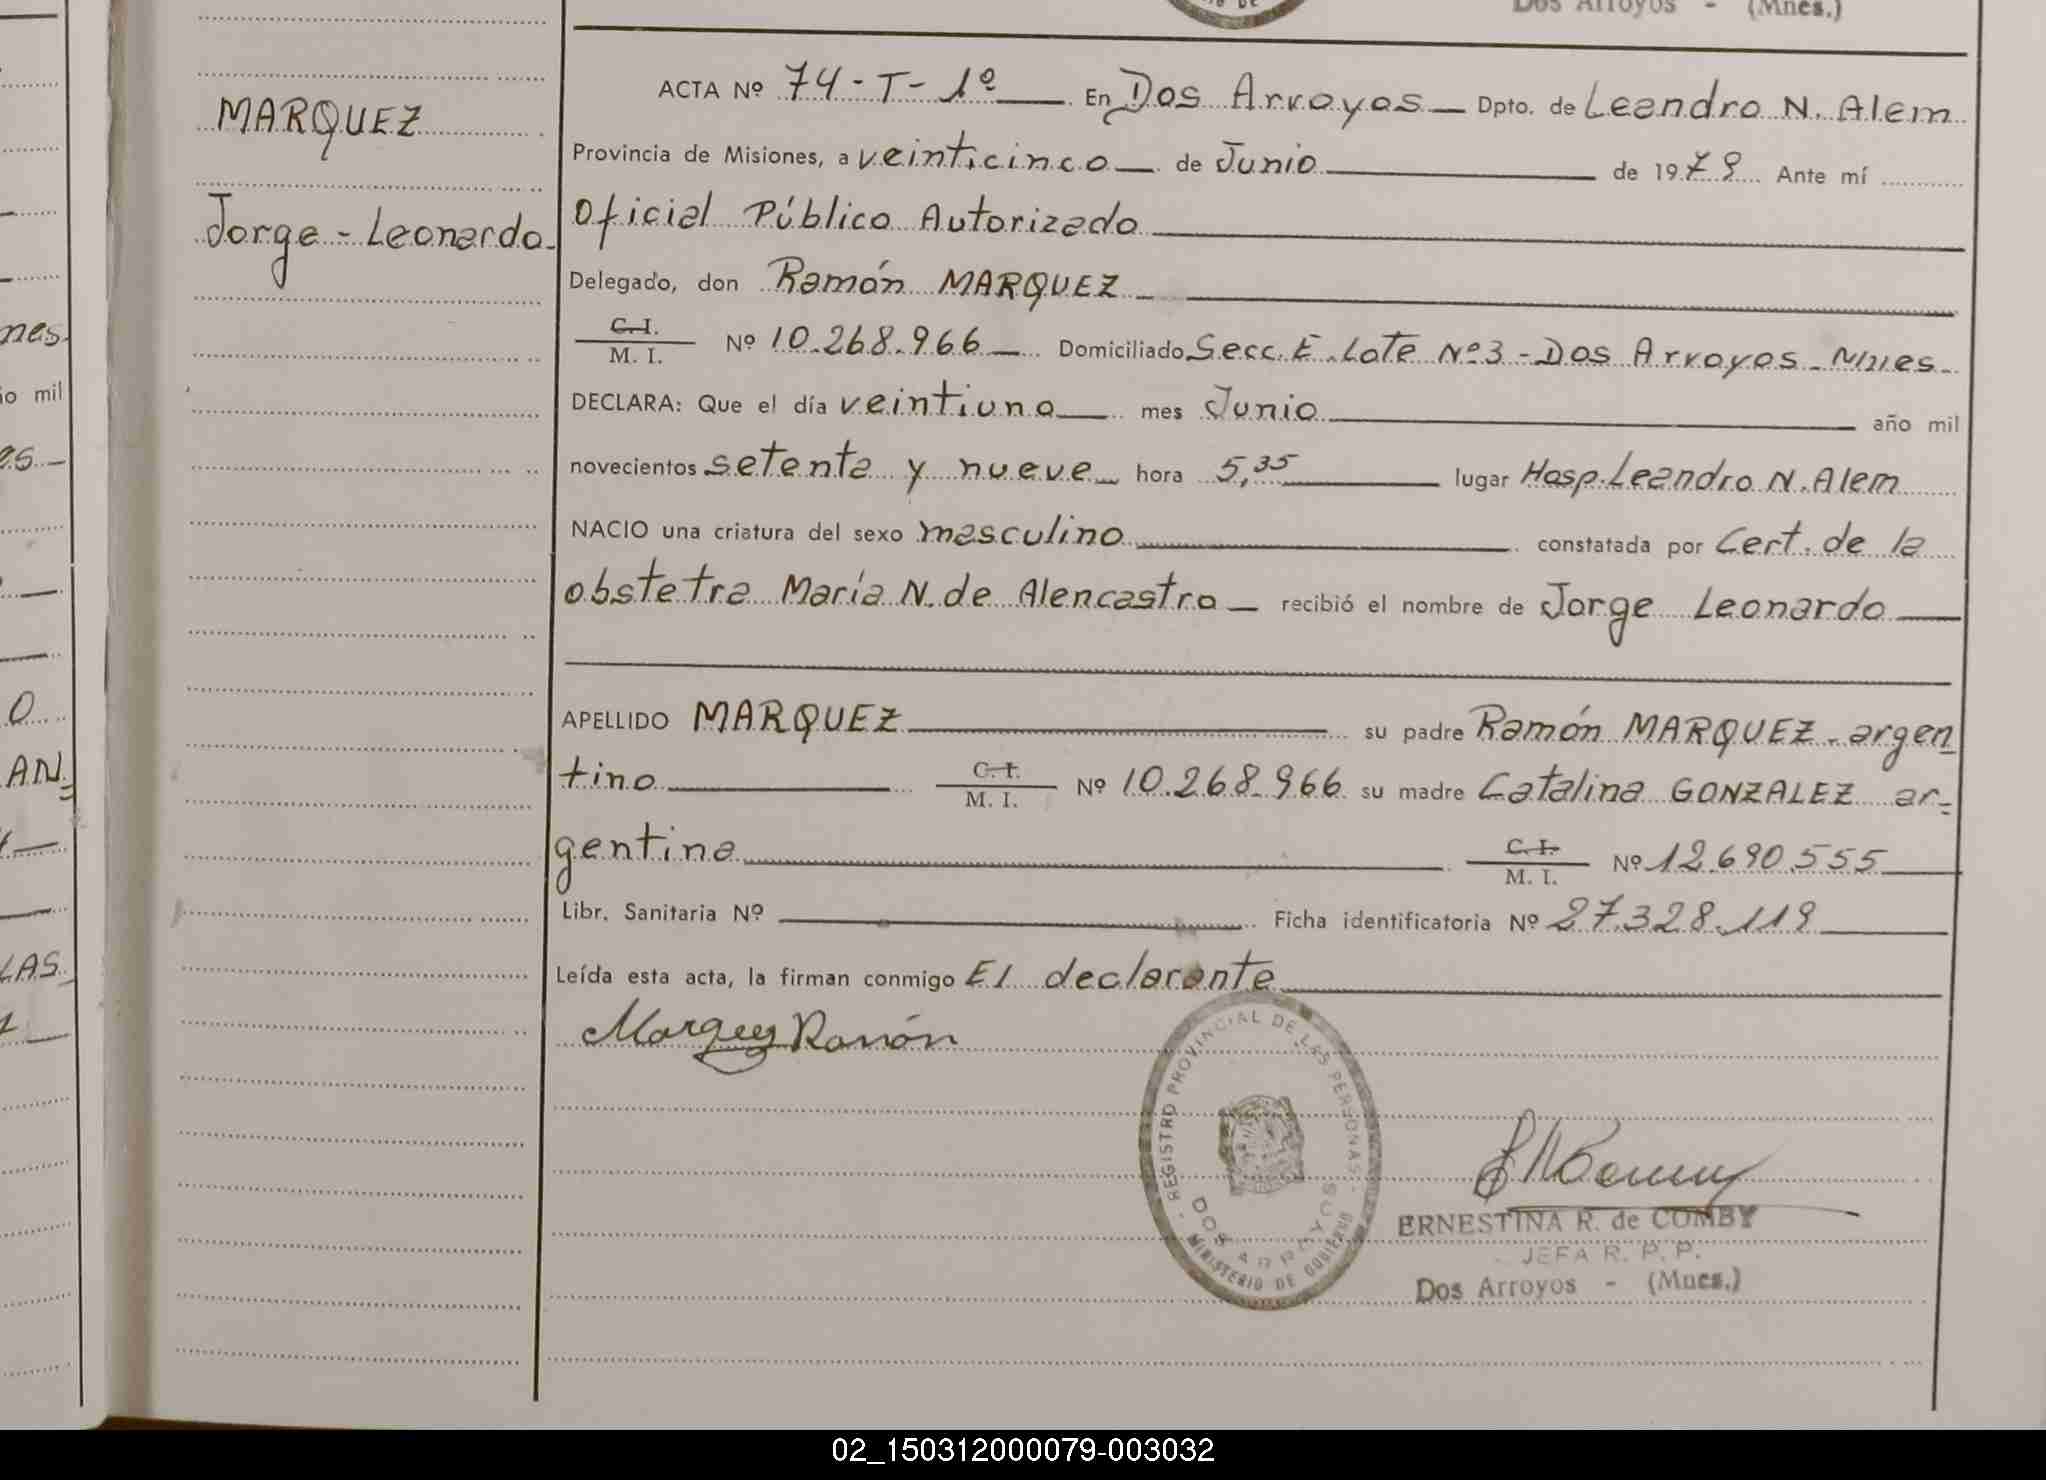 Dos Arroyos - (Mnes.)
MARQUEZ
Jorge - Leonardo.
ACTA Nº 74 - T - 1º En Dos Arroyos Dpto. de Leandro N. Alem
Provincia de Misiones, a veinticinco de Junio de 1979 Ante mí
Oficial Público Autorizado
Delegado, don Ramón MARQUEZ
C. I.
M. I.
Nº 10.268.966 Domiciliado Secc. E. Lote Nº 3 - Dos Arroyos - Mnes -
DECLARA: Que el día veintiuno mes Junio año mil
novecientos setenta y nueve hora 5,35 lugar Hosp. Leandro N. Alem
NACIO una criatura del sexo masculino constatada por Cert. de la
obstetra María N. de Alencastro recibió el nombre de Jorge Leonardo
APELLIDO MARQUEZ su padre Ramón MARQUEZ - argen
tino C. I.
M. I.
Nº 10.268.966 su madre Catalina GONZALEZ ar-
gentina C. I.
M. I.
Nº 12.690.555
Libr. Sanitaria Nº Ficha identificatoria Nº 27.328.119
Leída esta acta, la firman conmigo El declarante
Marquez Ramón
REGISTRO PROVINCIAL DE LAS PERSONAS
DOS ARROYOS
MINISTERIO DE GOBIERNO
ERNESTINA R. de COMBY
JEFA R. P. P.
Dos Arroyos - (Mnes.)
nes.
io mil
es
O
AN.
LAS
02_150312000079-003032